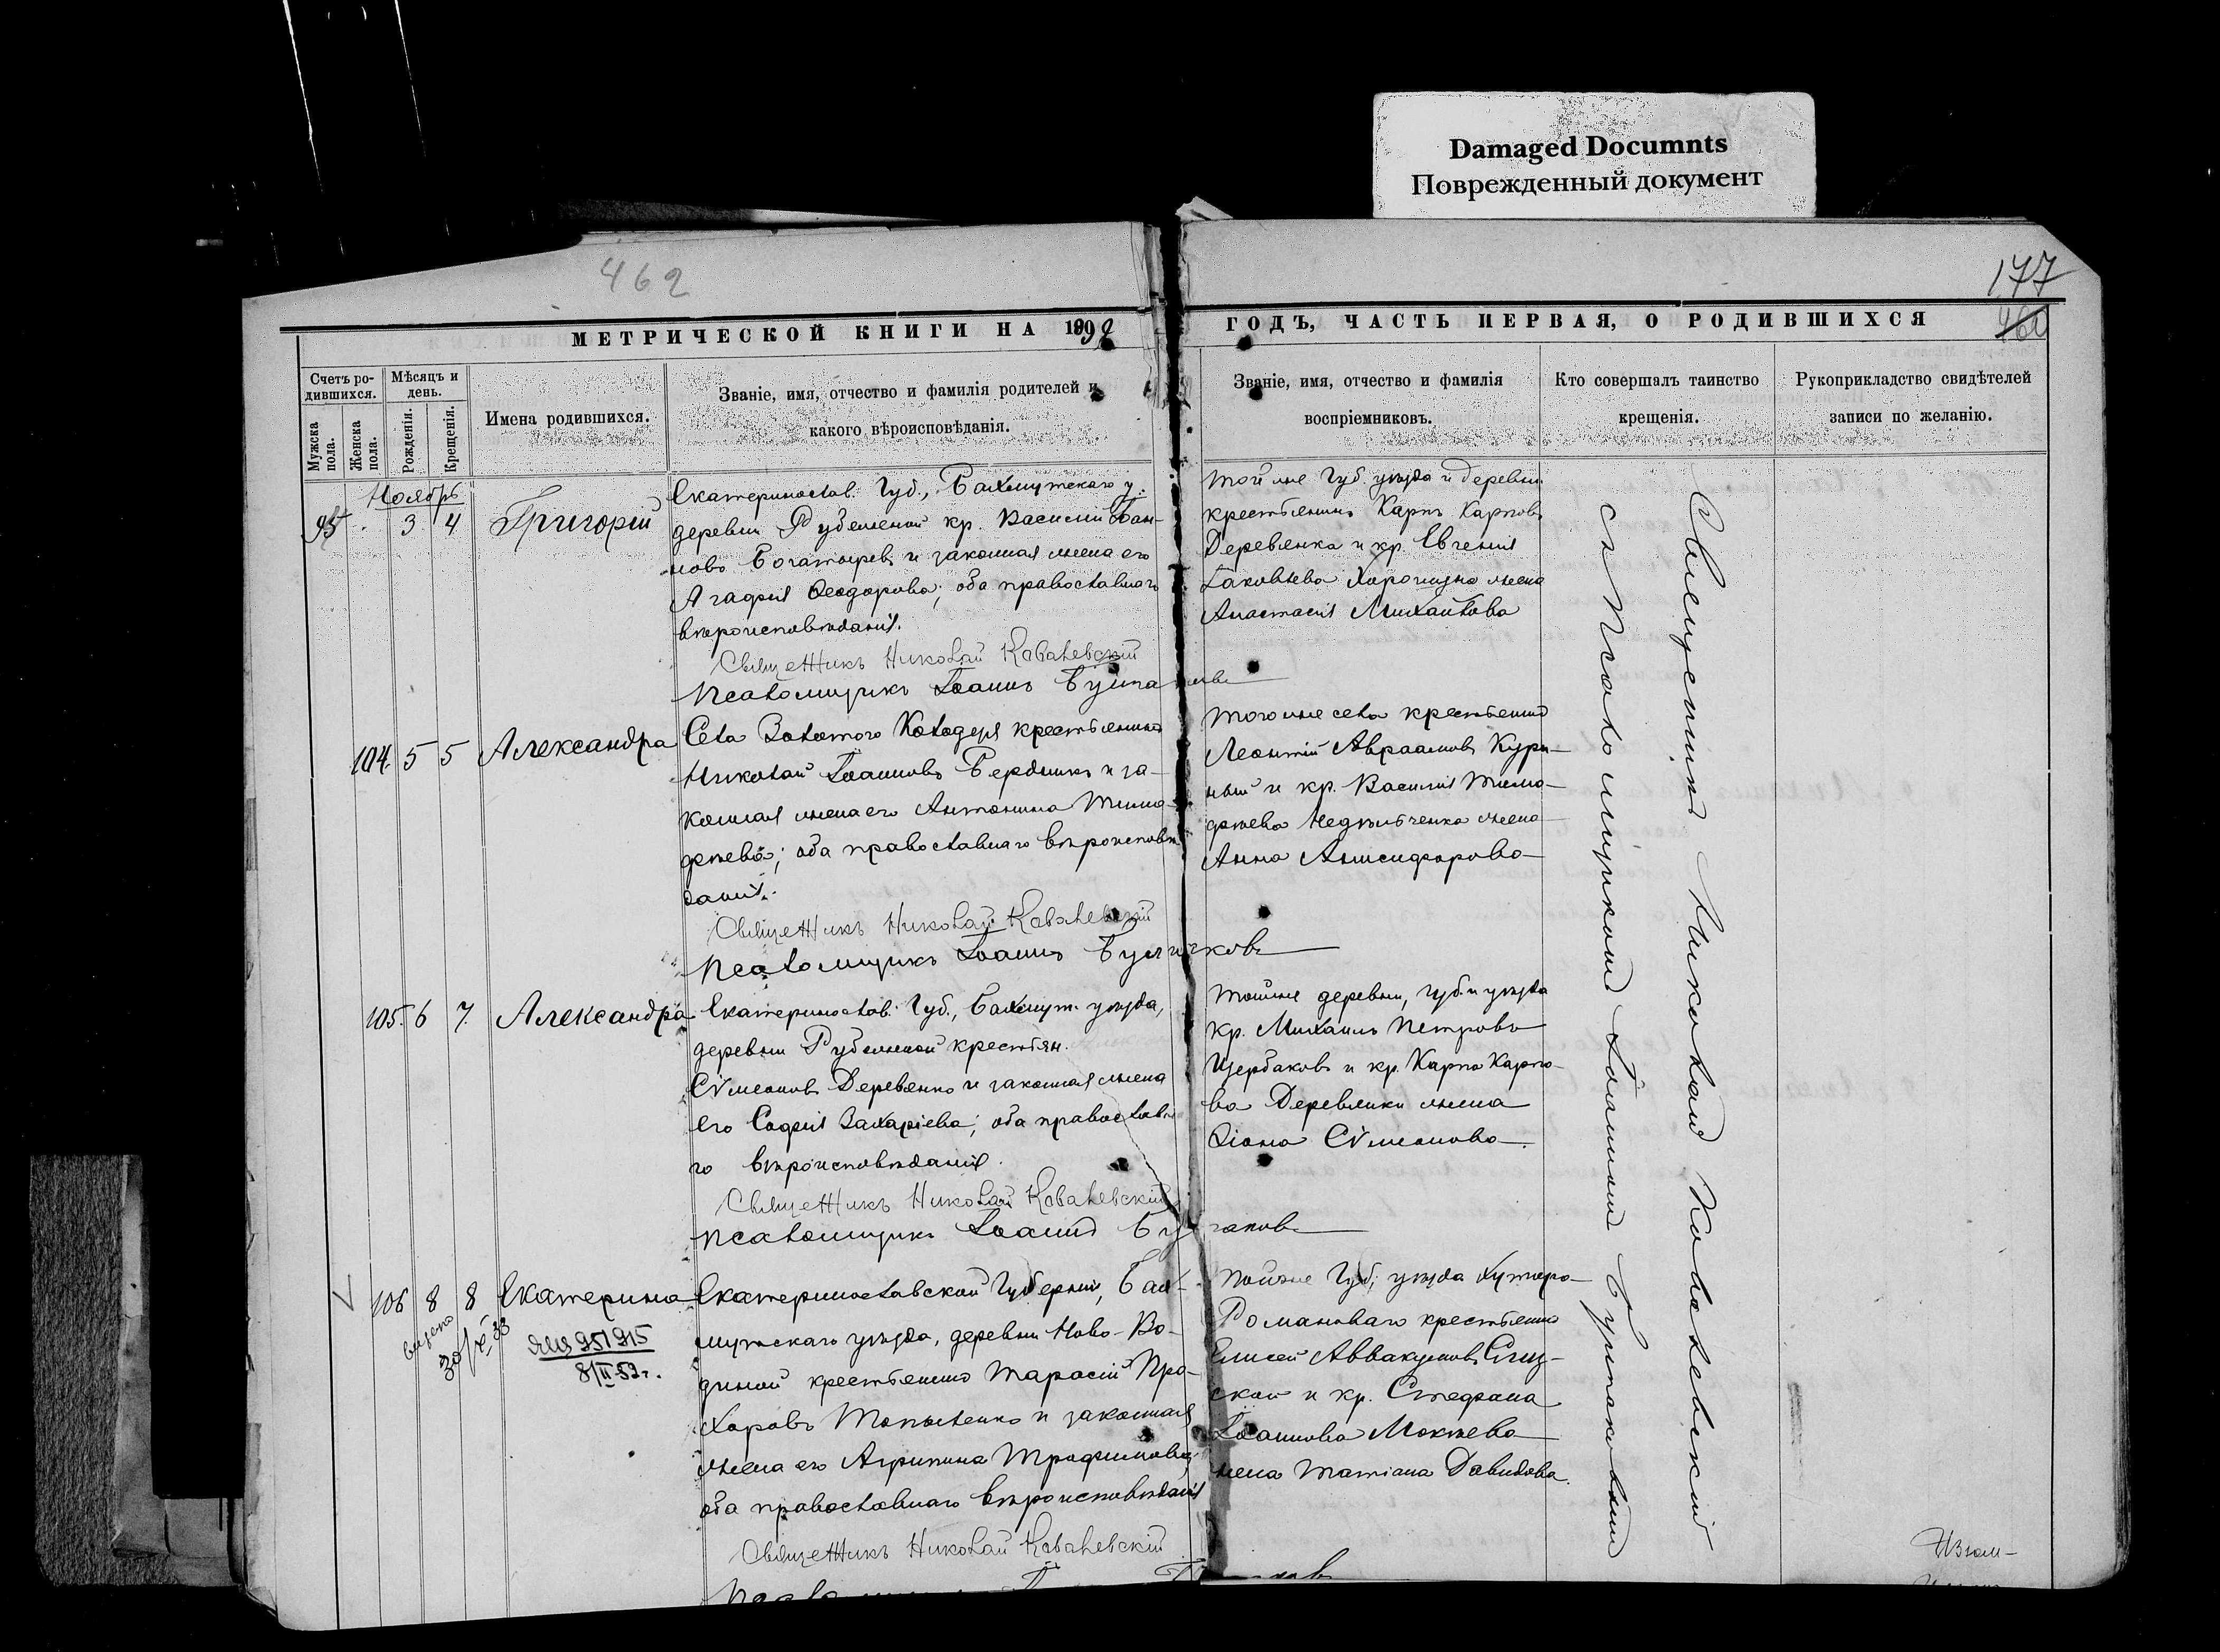 Damaged Documnts
Поврежденный документ
462
177
МЕТРИЧЕСКОЙ КНИГИ НА 1892
ГОДЪ, ЧАСТЬ ПЕРВАЯ, О РОДИВШИХСЯ
Счетъ ро-
дившихся.
Мѣсяцъ и
день.
Мужска
пола.
Женска
пола.
Рожденія.
Крещенія.
Имена родившихся.
Званіе, имя, отчество и фамилія родителей и
какого вѣроисповѣданія.
Званіе, имя, отчество и фамилія
воспріемниковъ.
Кто совершалъ таинство
крещенія.
Рукоприкладство свидѣтелей
записи по желанію.
Ноябрь
95 3 4 Григорій
Екатеринослав. Губ., Бахмутскаго у.
деревни Рубежной кр. Василій Іоан-
новъ Богатыревъ и законная жена его
Агафія Ѳеодорова; оба православнаго
вѣроисповѣданія.
Священникъ Николай Ковалевскій
Псаломщикъ Іоаннъ
той же Губ. уѣзда и деревни
крестьянинъ Карпъ Карповъ
Деревянка и кр. Евгенія
Іаковлева жена
Анастасія Михайлова
104. 5 5 Александра
Села Золотого Колодезя крестьянинъ
Николай Іоанновъ Бердникъ и за-
конная жена его Антонина Тимо-
фѣева; оба православнаго вѣроисповѣ
данія.
Священникъ Николай Ковалевскій
Псаломщикъ Іоаннъ
того же села крестьянинъ
Леонтій Авраамовъ Кури-
ный и кр. Василія Тимо-
фѣева жена
Анна Анисифорова
105. 6 7. Александра
Екатеринослав. Губ., Бахмут. уѣзда,
деревни Рубежной крестьян.
Сѵмеонъ Деревянко и законная жена
его Софія Захаріева; оба православна
го вѣроисповѣданія.
Священникъ Николай Ковалевскій
Псаломщикъ Іоаннъ
той же деревни, губ. и уѣзда
кр. Михаилъ Петровъ
Щербаковъ и кр. Карпа Карпо-
ва Деревянки жена
Сѵмеонова
106 8 8 Екатерина
выдано
ЯЩ 951915
8/II-52г.
Екатеринославской Губерніи, Бах-
мутскаго уѣзда, деревни Ново-Во-
дяной крестьянинъ Тарасій Про-
хоровъ и законная
жена его Агрипина Трофимова,
оба православнаго вѣроисповѣданія
Священникъ Николай Ковалевскій
той же Губ., уѣзда Хутора
Романоваго крестьянинъ
Елисей Аввакумовъ
и кр. Стефана
Іоаннова Мокѣева
жена Татіана Давидова.
Священникъ Николай Ковалевскій
съ Псаломщикомъ Іоанномъ
Изюм-